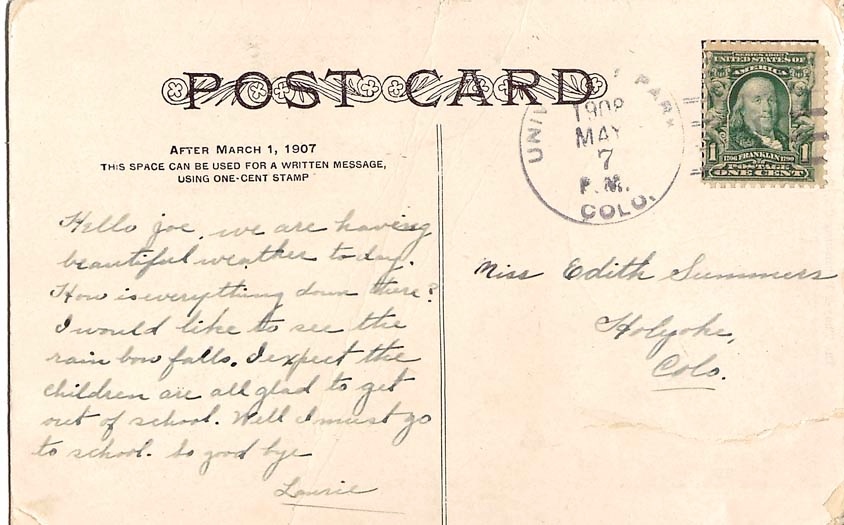 POST CARD
AFTER MARCH 1, 1907
THIS SPACE CAN BE USED FOR A WRITTEN MESSAGE,
USING ONE-CENT STAMP
UNI PARK
1908
MAY
7
P.M.
COLO.
SERIES 1902
UNITED STATES OF
AMERICA
1706 FRANKLIN 1790
1 POSTAGE 1
ONE CENT
Hello joe, we are having
beautiful weather to day.
How is everything down there?
I would like to see the
rain bow falls. I expect the
children are all glad to get
out of school. Well I must go
to school. So good bye
Laurie
Miss Edith Summers
Holyoke,
Colo.